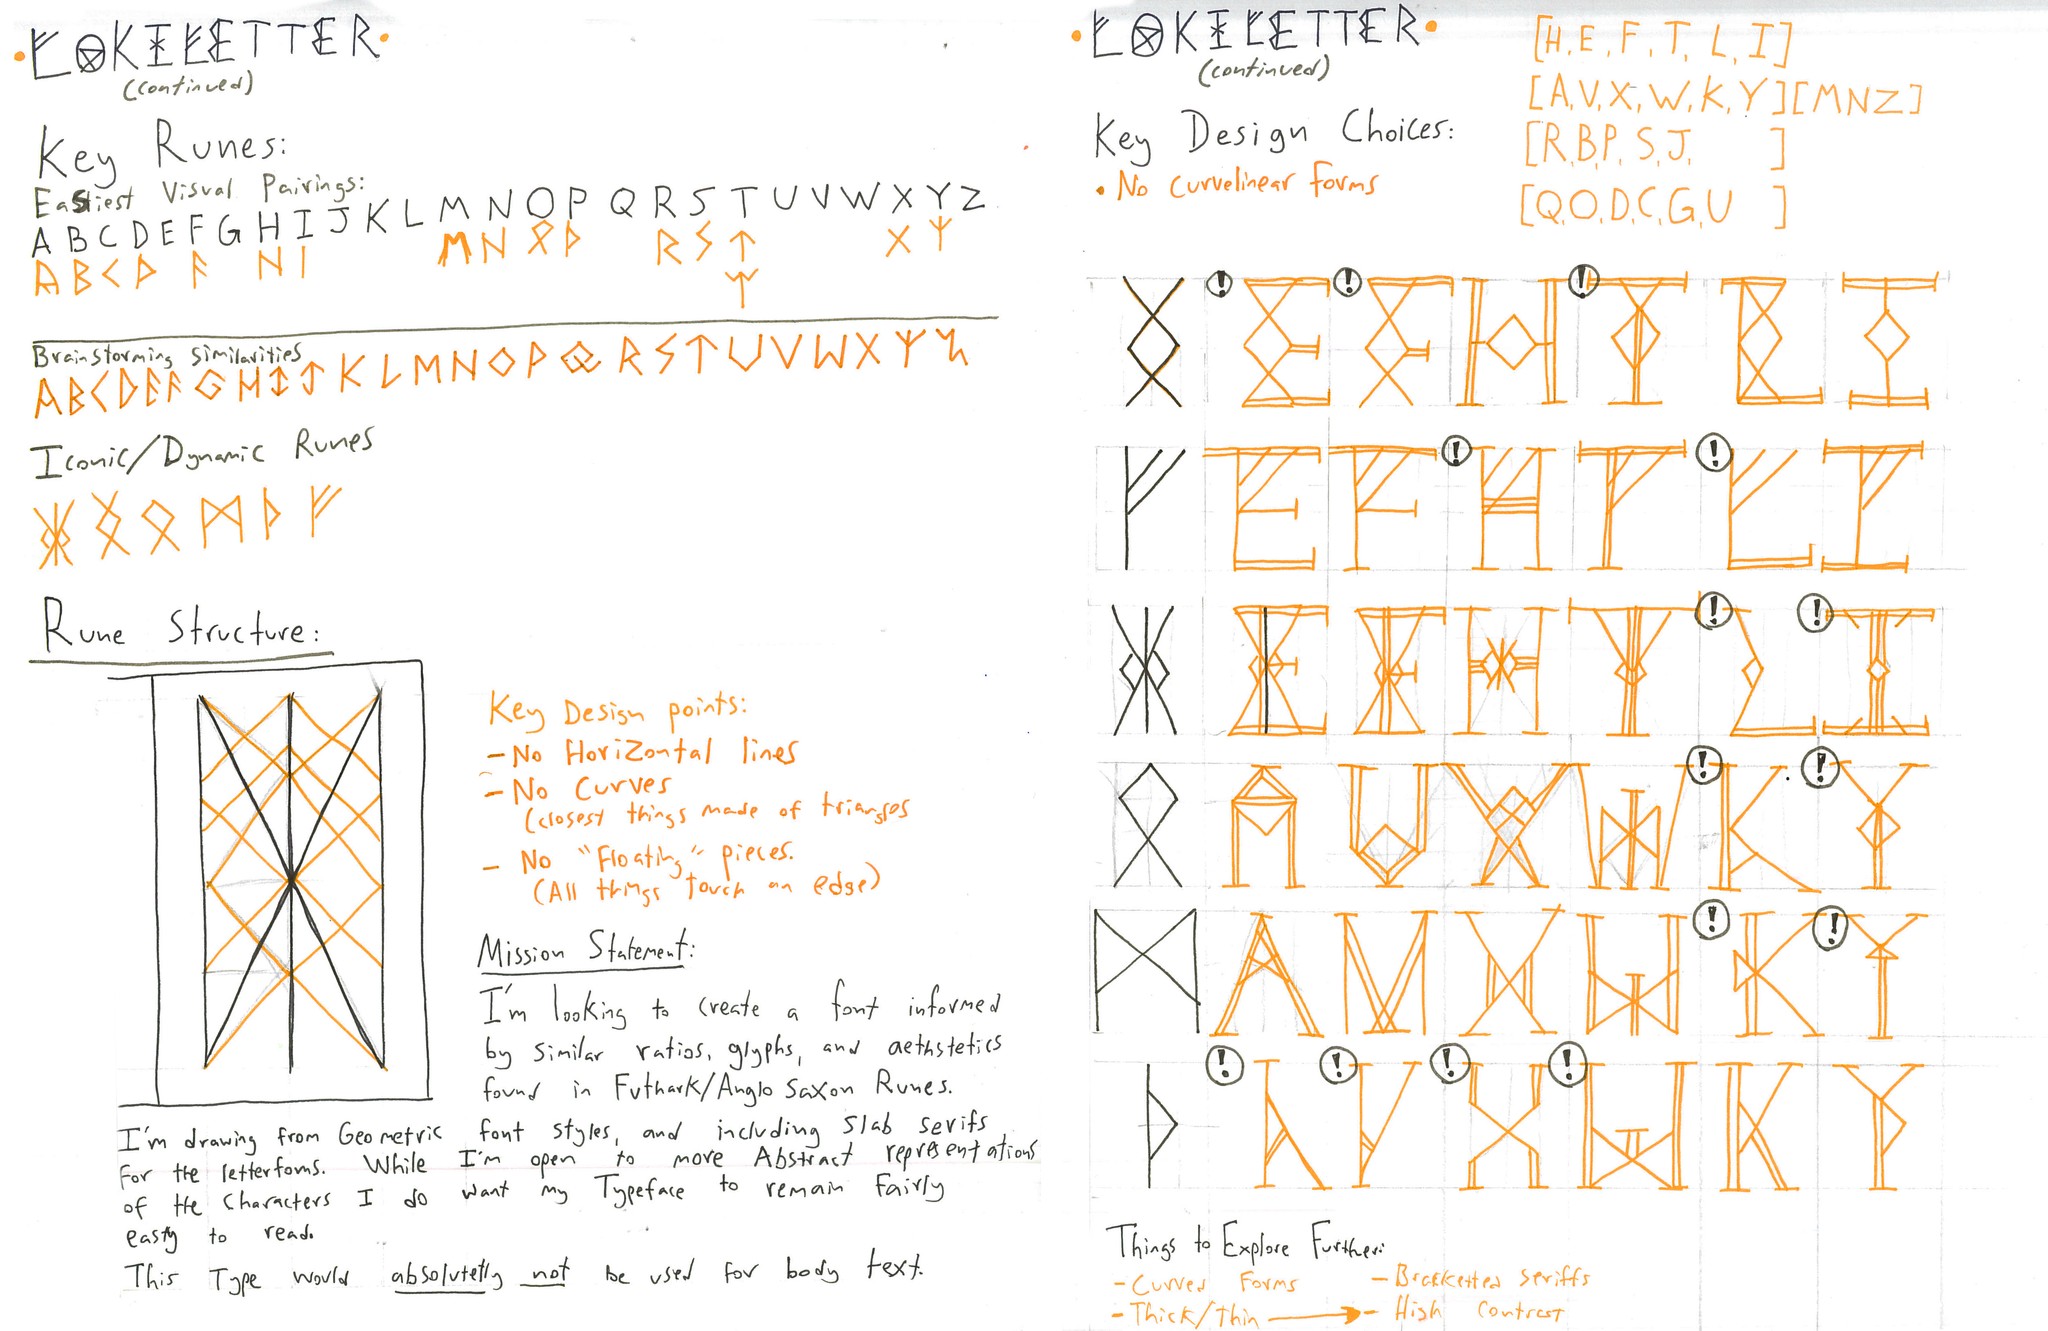 LOKILETTER
(continued)
Key Runes:
Easiest Visual Pairings:
A B C D E F G H I J K L M N O P Q R S T U V W X Y Z
Brainstorming Similarities
Iconic/Dynamic Runes
Rune Structure:
Key Design points:
- No Horizontal lines
- No Curves
(closest things made of triangles
- No "Floating" pieces.
(All things touch an edge)
Mission Statement:
I'm looking to create a font informed
by similar ratios, glyphs, and aethstetics
found in Futhark/Anglo Saxon Runes.
I'm drawing from Geometric font styles, and including Slab serifs
for the letterfoms. While I'm open to more Abstract representations
of the Characters I do want my Typeface to remain fairly
easty to read.
This Type would absolutetly not be used for body text.
LOKILETTER
(continued)
[H, E, F, T, L, I]
[A, V, X, W, K, Y] [M N Z]
[R, B, P, S, J, ]
[Q, O, D, C, G, U ]
Key Design Choices:
• No Curvelinear forms
! ! !
! !
! !
! !
! !
! ! ! !
Things to Explore Further:
- Curved Forms
- Bracketted Seriffs
- Thick/Thin
- High Contrast